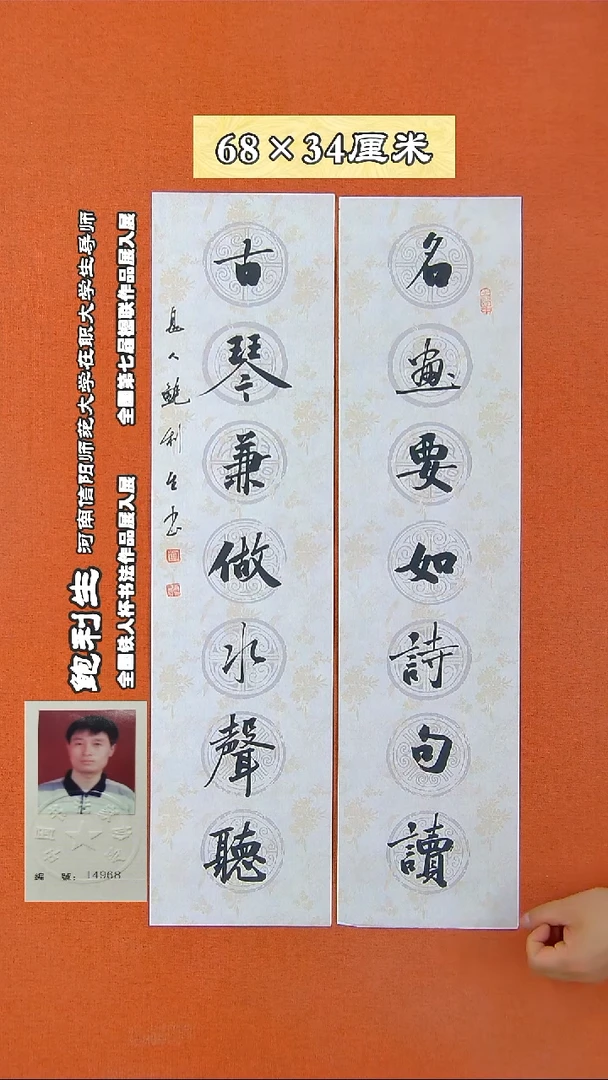 68×34厘米
名畫要如詩句讀
古琴兼做水聲聽
息人鲍利生书
鲍利生 河南信阳师范大学在职大学生导师
全国铁人杯书法作品展入展 全国第七届楹联作品展入展
编 號：14968